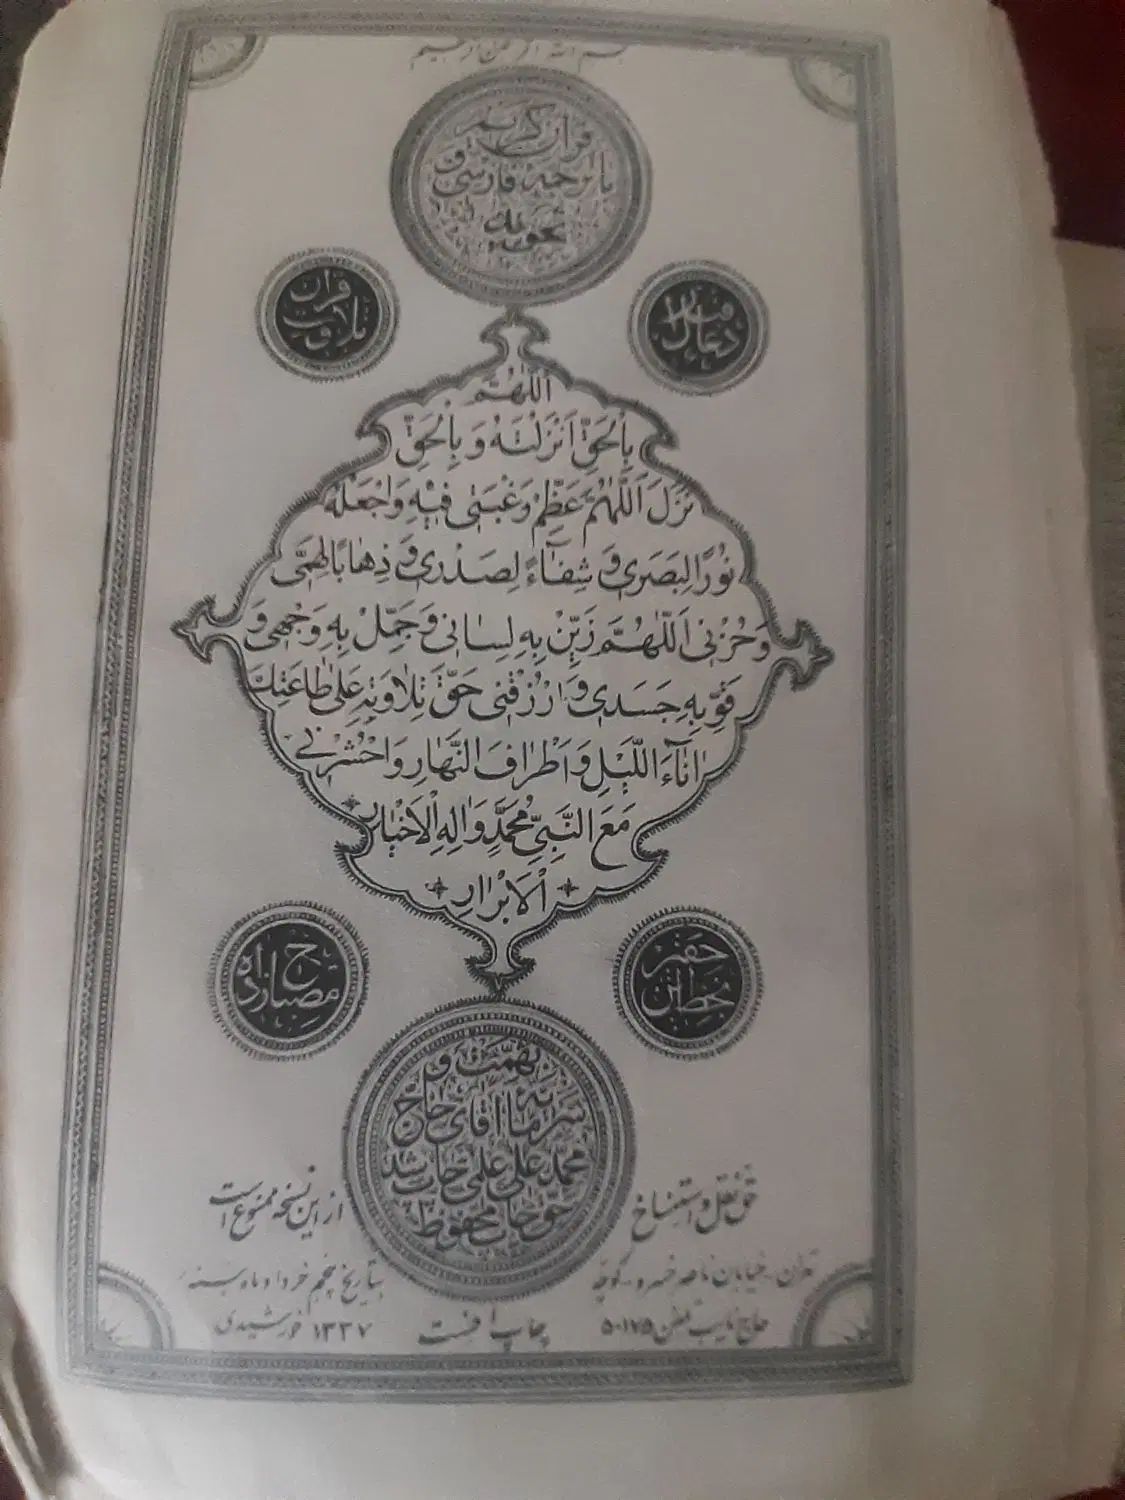 بسم الله الرحمن الرحیم
قرآن کریم
با ترجمه فارسی و
دعای قبل از
تلاوت قرآن
اَللّٰهُمَّ
بِالْحَقِّ اَنْزَلْتَهُ وَ بِالْحَقِّ
نَزَلَ اَللّٰهُمَّ عَظِّمْ رَغْبَتی فیهِ وَاجْعَلْهُ
نُورًا لِبَصَری وَ شِفآءً لِصَدْری وَ ذِهابًا لِهَمّی
وَحُزْنی اَللّٰهُمَّ زَیِّنْ بِهِ لِسانی وَ جَمِّلْ بِهِ وَجْهی وَ
قَوِّبِهِ جَسَدی وَ ارْزُقْنی حَقَّ تِلاوَتِهِ عَلی طاعَتِكَ
انآءَ اللَّیْلِ وَ اَطْرافَ النَّهارِ وَاحْشُرْنی
مَعَ النَّبِیِّ مُحَمَّدٍ وَالِهِ الْاَخْیارِ
الْاَبْرارِ
ح مصباحزاده
بهمت و
سرمایه آقای حاج
محمد علی علمی چاپ شد
حق چاپ محفوظ
حق نقل و استنساخ
از این نسخه ممنوع است
تهران - خیابان ناصر خسرو - کوچه
حاج نایب تلفن ۵۰۱۷۵
چاپ افست
بتاریخ پنجم خرداد ماه سنه
۱۳۳۷ خورشیدی